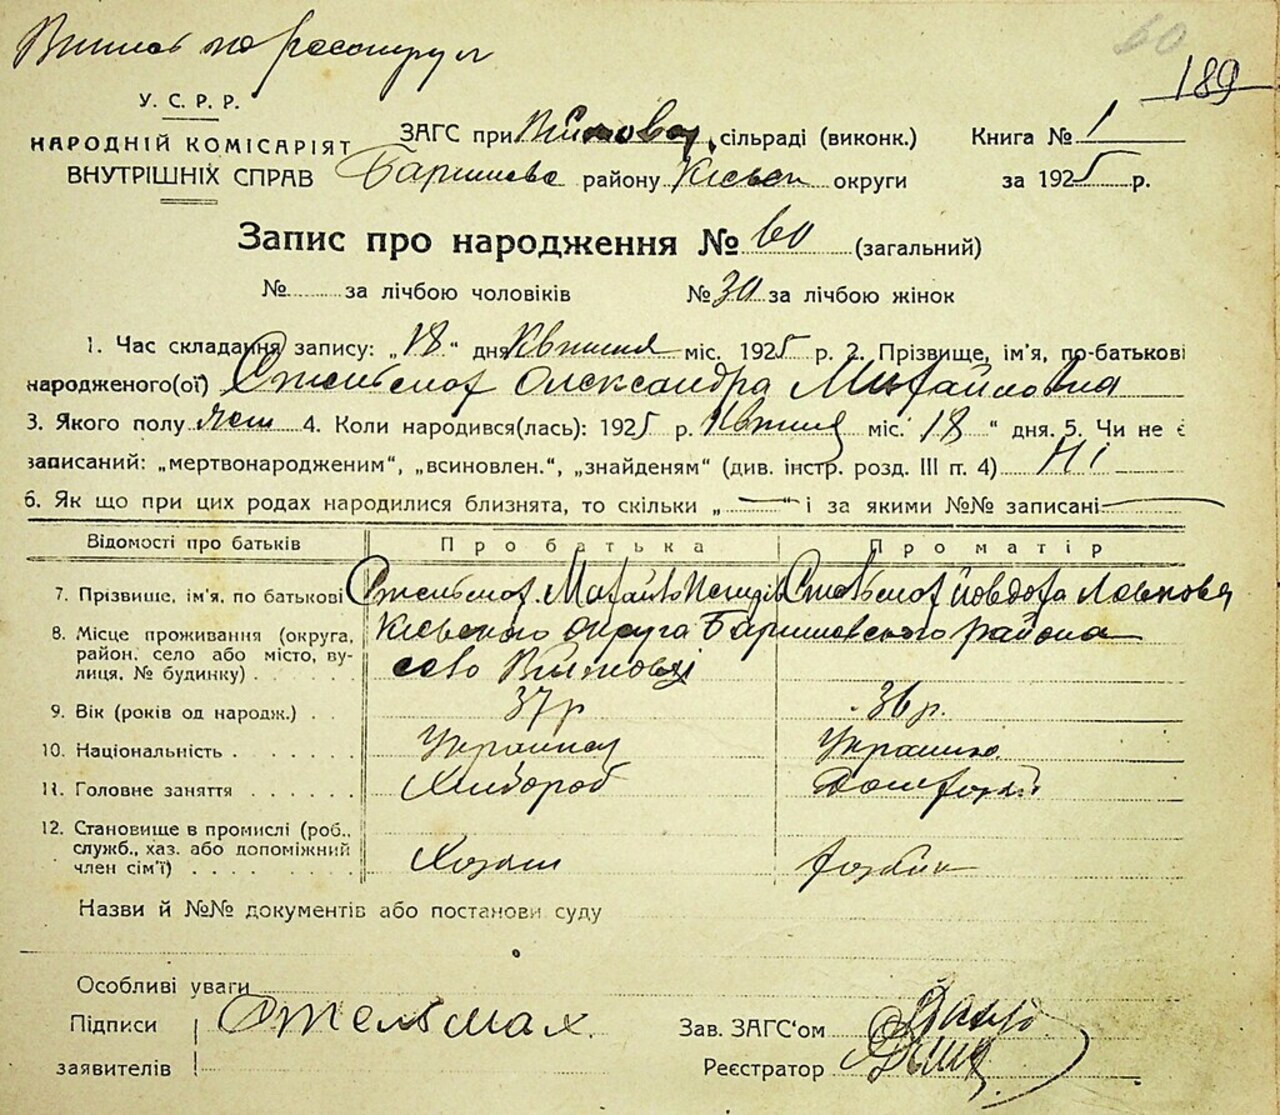 60
189
У. С. Р. Р.
НАРОДНІЙ КОМІСАРІЯТ
ВНУТРІШНІХ СПРАВ
ЗАГС при сільраді (виконк.)
Баришевс району Київськ округи
Книга № 1
за 1925 р.
Запис про народження № 60 (загальний)
№ за лічбою чоловіків № 30 за лічбою жінок
1. Час складання запису: „18“ дня Квітня міс. 1925 р. 2. Прізвище, ім'я, по-батькові
народженого(ої) Стельмах Олександра Михайловна
3. Якого полу жін 4. Коли народився(лась): 1925 р. Квітня міс. 18 “ дня. 5. Чи не є
записаний: „мертвонародженим“, „всиновлен.“, „знайденям“ (див. інстр. розд. III п. 4) Ні
6. Як що при цих родах народилися близнята, то скільки „ — “ і за якими №№ записані —
Відомості про батьків Про батька Про матір
7. Прізвище, ім'я, по батькові Стельмах Михайло Стельмах Йовдоха
8. Місце проживання (округа, район, село або місто, вулиця, № будинку) Київського округа Баришевського района
село
9. Вік (років од народж.) 37 р 36 р.
10. Національність
11. Головне заняття Хлібороб
12. Становище в промислі (роб., служб., хаз. або допоміжний член сім'ї) Хозяин
Назви й №№ документів або постанови суду
Особливі уваги
Підписи Стельмах.
заявителів
Зав. ЗАГС'ом
Реєстратор